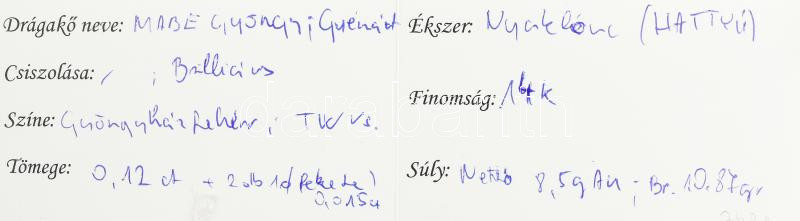 Drágakő neve: MABE GYÖNGY; Gyémánt
Csiszolása: / ; Brilliáns
Színe: Gyöngyházfehér; TW vs.
Tömege: 0,12 ct + 2 db 1d (fekete) 0,015ct
Ékszer: Nyaklánc (HATTYÚ)
Finomság: 14k
Súly: Nettó 8,5g Au; Br. 10.87gr